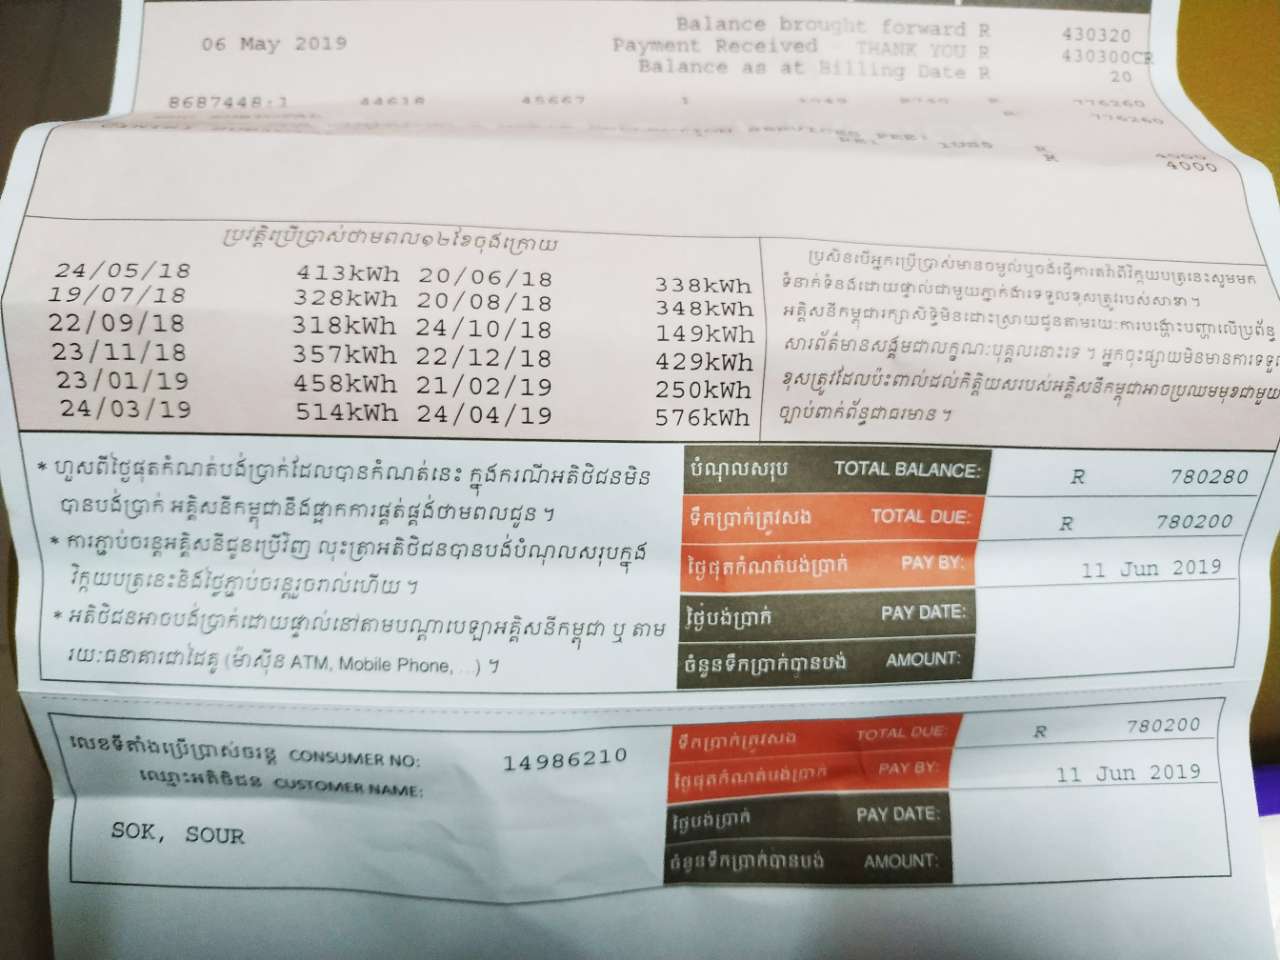 Balance brought forward R 430320
06 May 2019 Payment Received THANK YOU R 430300CR
Balance as at Billing Date R 20
8687448:1 44618 45667 1 1049 R 776260
R 776260
R 4000
R 4000
ប្រវត្តិប្រើប្រាស់ថាមពល១២ខែចុងក្រោយ
24/05/18 413kWh 20/06/18 338kWh
19/07/18 328kWh 20/08/18 348kWh
22/09/18 318kWh 24/10/18 149kWh
23/11/18 357kWh 22/12/18 429kWh
23/01/19 458kWh 21/02/19 250kWh
24/03/19 514kWh 24/04/19 576kWh
ប្រសិនបើអ្នកប្រើប្រាស់មានចម្ងល់ឬចង់ធ្វើការតវ៉ាពីវិក្កយបត្រនេះសូមមក
ទំនាក់ទំនងដោយផ្ទាល់ជាមួយភ្នាក់ងារទទួលខុសត្រូវរបស់សាខា។
អគ្គិសនីកម្ពុជារក្សាសិទ្ធិមិនដោះស្រាយជូនតាមរយៈការបង្ហោះបញ្ហាលើប្រព័ន្ធ
សារព័ត៌មានសង្គមជាលក្ខណៈបុគ្គលនោះទេ ។ អ្នកចុះផ្សាយមិនមានការទទួល
ខុសត្រូវដែលប៉ះពាល់ដល់កិត្តិយសរបស់អគ្គិសនីកម្ពុជាអាចប្រឈមមុខជាមួយ
ច្បាប់ពាក់ព័ន្ធជាធរមាន ។
* ហួសពីថ្ងៃផុតកំណត់បង់ប្រាក់ដែលបានកំណត់នេះ ក្នុងករណីអតិថិជនមិន
បានបង់ប្រាក់ អគ្គិសនីកម្ពុជានឹងផ្អាកការផ្គត់ផ្គង់ថាមពលជូន ។
* ការភ្ជាប់ចរន្តអគ្គិសនីជូនប្រើវិញ លុះត្រាអតិថិជនបានបង់បំណុលសរុបក្នុង
វិក្កយបត្រនេះនិងថ្លៃភ្ជាប់ចរន្តរួចរាល់ហើយ ។
* អតិថិជនអាចបង់ប្រាក់ដោយផ្ទាល់នៅតាមបណ្តាបេឡាអគ្គិសនីកម្ពុជា ឬ តាម
រយៈធនាគារជាដៃគូ (ម៉ាស៊ីន ATM, Mobile Phone, ...) ។
បំណុលសរុប TOTAL BALANCE: R 780280
ទឹកប្រាក់ត្រូវសង TOTAL DUE: R 780200
ថ្ងៃផុតកំណត់បង់ប្រាក់ PAY BY: 11 Jun 2019
ថ្ងៃបង់ប្រាក់ PAY DATE:
ចំនួនទឹកប្រាក់បានបង់ AMOUNT:
លេខទីតាំងប្រើប្រាស់ចរន្ត CONSUMER NO: 14986210
ឈ្មោះអតិថិជន CUSTOMER NAME:
SOK, SOUR
ទឹកប្រាក់ត្រូវសង TOTAL DUE: R 780200
ថ្ងៃផុតកំណត់បង់ប្រាក់ PAY BY: 11 Jun 2019
ថ្ងៃបង់ប្រាក់ PAY DATE:
ចំនួនទឹកប្រាក់បានបង់ AMOUNT: